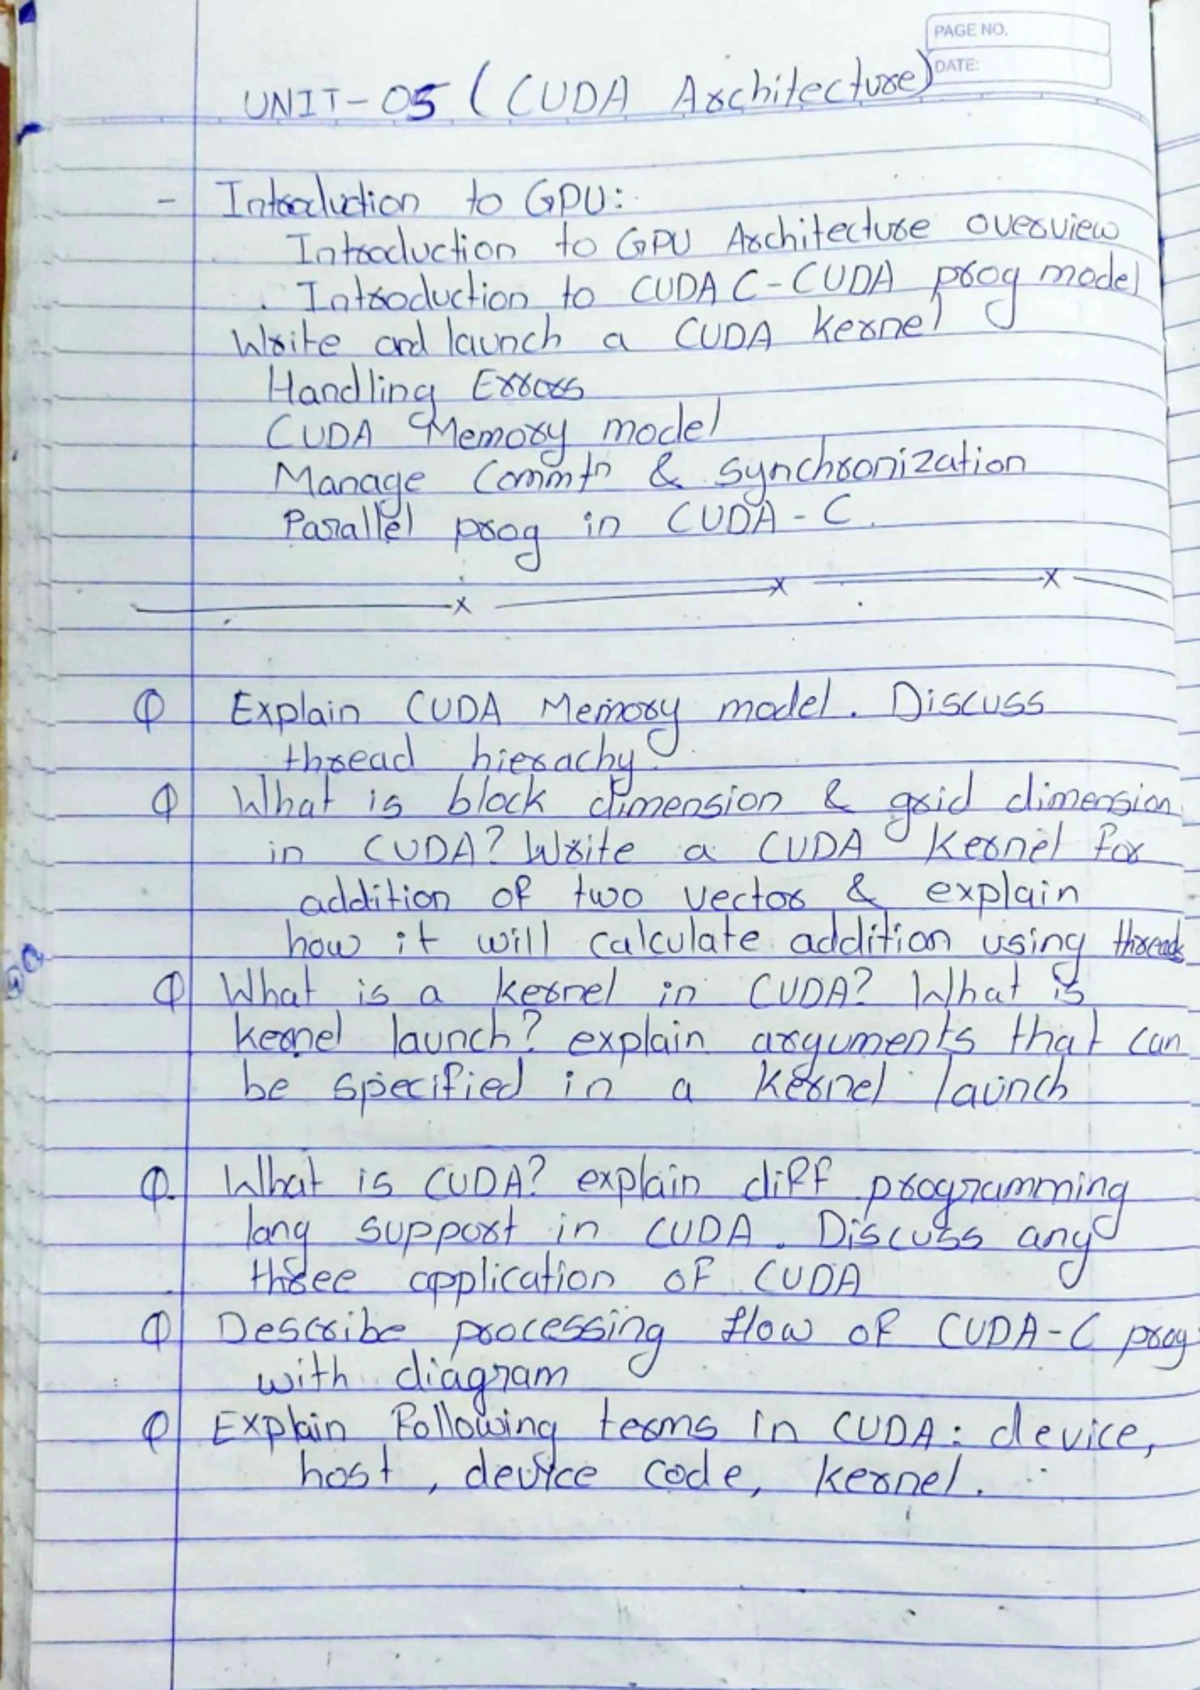 PAGE NO.
DATE:
UNIT-05 (CUDA Architecture)
- Introduction to GPU:
Introduction to GPU Architecture overview
. Introduction to CUDA C-CUDA prog model
Write and launch a CUDA Kernel
Handling Errors
CUDA Memory model
Manage Commtn & synchronization
Parallel prog in CUDA-C.
Q Explain CUDA Memory model. Discuss
thread hierachy.
Q What is block dimension & grid dimension
in CUDA? Write a CUDA Kernel for
addition of two vector & explain
how it will calculate addition using threads
Q What is a kernel in CUDA? What is
kernel launch? explain arguments that can
be specified in a kernel launch
Q. What is CUDA? explain diff programming
lang support in CUDA. Discuss any
three application of CUDA
Q Describe processing flow of CUDA-C prog
with diagram
Q Explain Following terms in CUDA: device,
host, device code, kernel.